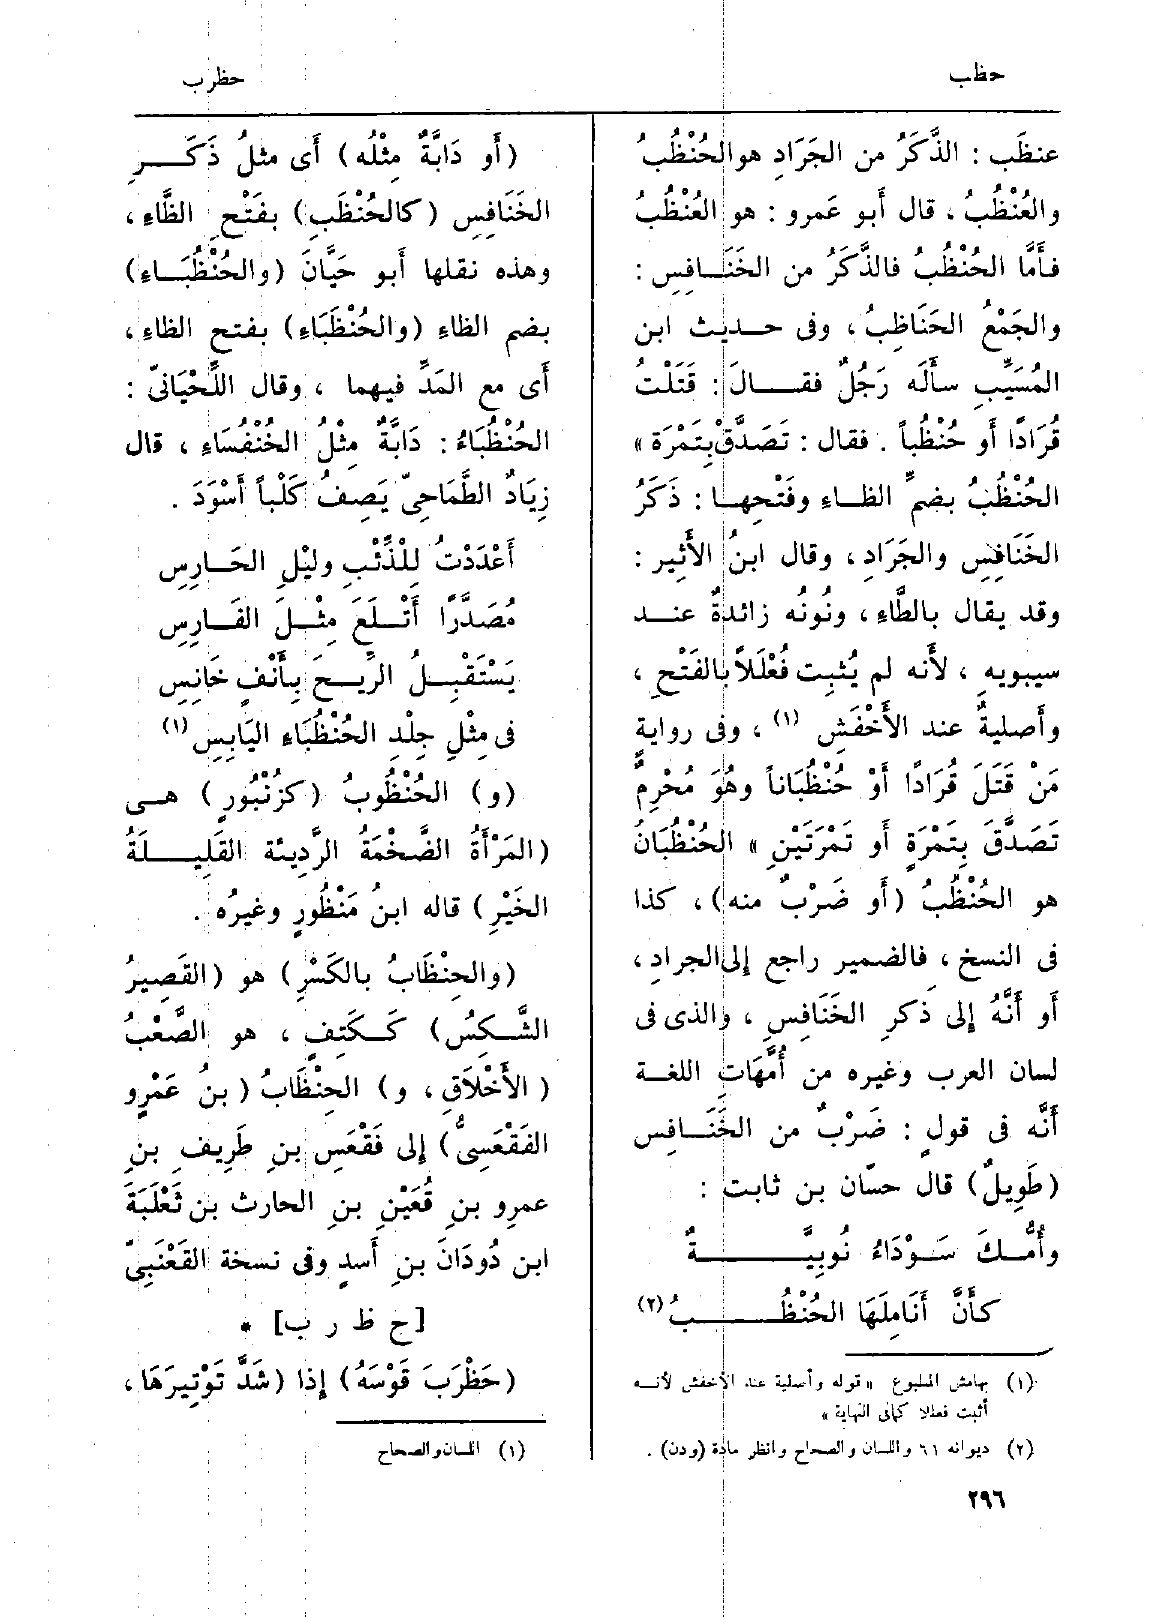 حظب
حظرب
عنظَب : الذَّكَرُ من الجَرَادِ هو الحُنْظُبُ
والعُنْظُبُ ، قال أَبو عَمرو : هو العُنْظُبُ
فأَمَّا الحُنْظُبُ فالذَّكَرُ من الخَنَافِسِ :
والجَمْعُ الحَنَاظِبُ ، وفى حديث ابن
المُسَيِّبِ سأَلَه رَجُلٌ فقالَ : قَتَلْتُ
قُرَادًا أَو حُنْظُباً . فقال : تَصَدَّقْ بِتَمْرَة »
الحُنْظُبُ بضمِّ الظاءِ وفَتْحِها : ذَكَرُ
الخَنَافِسِ والجَرَادِ ، وقال ابنُ الأَثِير :
وقد يقال بالطَّاءِ ، ونُونُه زائدةٌ عند
سيبويهِ ، لأَنه لم يُثبِت فُعْلَلاً بالفَتْحِ ،
وأَصليةٌ عند الأَخْفَشِ (١) ، وفى روايةِ
مَنْ قَتَلَ قُرَادًا أَوْ حُنْظُبَاناً وهُوَ مُحْرِمٌ
تَصَدَّقَ بِتَمْرَةٍ أَو تَمْرَتَيْنِ » الحُنْظُبَانُ
هو الحُنْظُبُ (أَو ضَرْبٌ منه) ، كذا
فى النسخ ، فالضمير راجع إلى الجرادِ ،
أَو أَنَّهُ إلى ذكرِ الخَنَافِسِ ، والذى فى
لسان العرب وغيره من أُمَّهَاتِ اللغة
أَنَّه فى قولٍ : ضَرْبٌ من الخَنَافِسِ
(طَوِيلٌ) قال حسّان بن ثابت :
وأُمُّكَ سَوْدَاءُ نُوبِيَّةٌ
كأَنَّ أَنَامِلَهَا الحُنْظُبُ (٢)
(١) بهامش المطبوع « قوله وأصلية عند الأخفش لأنه
أثبت فعللا كما فى النهاية »
(٢) ديوانه ٦١ واللسان والصحاح وانظر مادة (ودن) .
(أَو دَابَّةٌ مِثْلُه) أَى مثلُ ذَكَرِ
الخَنَافِسِ (كالحُنْظَبِ) بفَتْحِ الظَّاءِ ،
وهذه نقلها أَبو حَيَّانَ (والحُنْظُبَاءِ)
بضم الظاءِ (والحُنْظَبَاءِ) بفتح الظاءِ ،
أَى مع المَدِّ فيهما ، وقال اللِّحْيَانىّ :
الحُنْظُبَاءُ : دَابَّةٌ مِثْلُ الخُنْفُسَاءِ ، قال
زِيَادٌ الطَّمَاحِىّ يَصِفُ كَلْباً أَسْوَدَ .
أَعْدَدْتُ لِلْذِّئْبِ وليْلِ الحَارِسِ
مُصَدَّرًا أَتْلَعَ مِثْلَ الفَارِسِ
يَسْتَقْبِلُ الرِّيحَ بِأَنْفٍ خَانِسِ
فى مِثْلِ جِلْدِ الحُنْظُبَاءِ اليَابِسِ (١)
(و) الحُنْظُوبُ (كزُنْبُورٍ) هى
(المَرْأَةُ الضَّخْمَةُ الرَّدِيئة القَلِيلَةُ
الخَيْرِ) قاله ابنُ مَنْظُورٍ وغيرُه .
(والحِنْظَابُ بالكَسْرِ) هو (القَصِيرُ
الشَّكِسُ) كَكَتِفٍ ، هو الصَّعْبُ
(الأَخْلَاقِ ، و) الحِنْظَابُ (بنُ عَمْرٍو
الفَقْعَسِىُّ) إلى فَقْعَسِ بنِ طَرِيفِ بنِ
عمرِو بنِ قُعَيْنِ بنِ الحارث بن ثَعْلَبَةَ
ابن دُودَانَ بنِ أَسدٍ وفى نسخة القَعْنَبِىّ
[ح ظ ر ب] *
(حَظْرَبَ قَوْسَهُ) إذا (شَدَّ تَوْتِيرَهَا ،
(١) اللسان والصحاح
٢٩٦